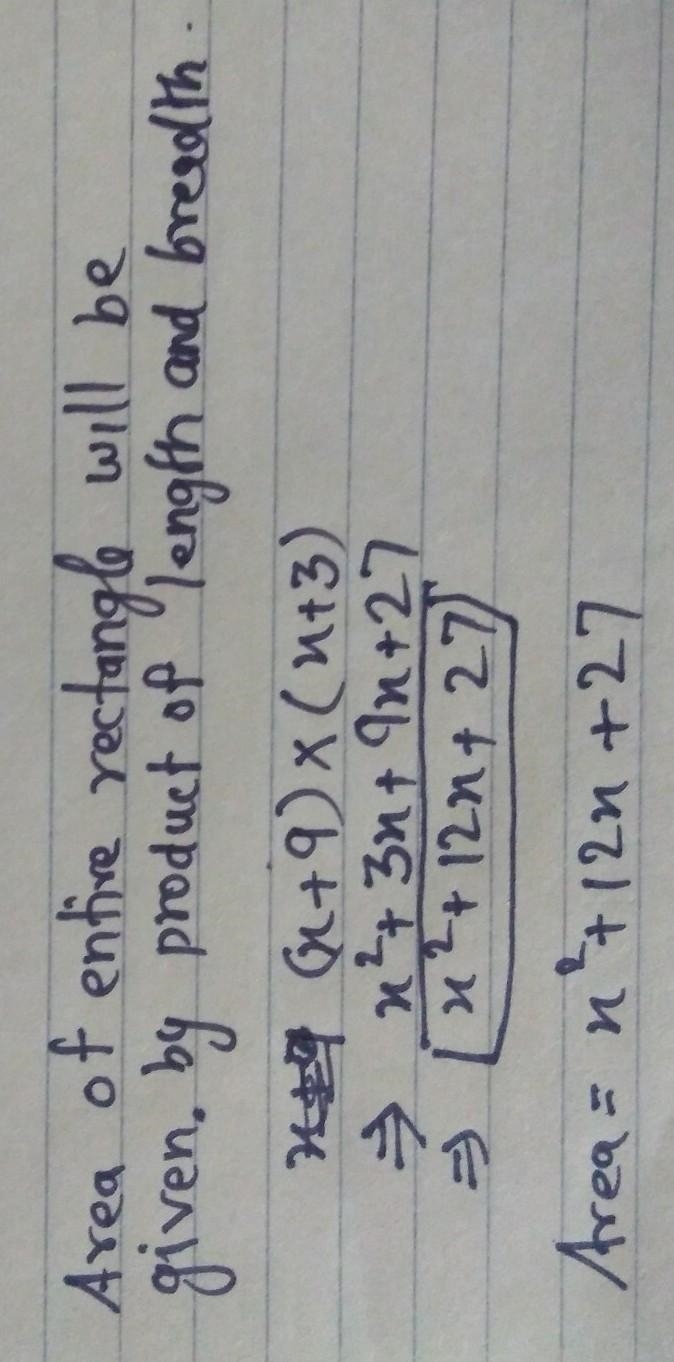 Area of entire rectangle will be
given, by product of length and breadth.
(x+9)×(x+3)
⇒ x²+3x+9x+27
⇒ x²+12x+27
Area = x²+12x+27